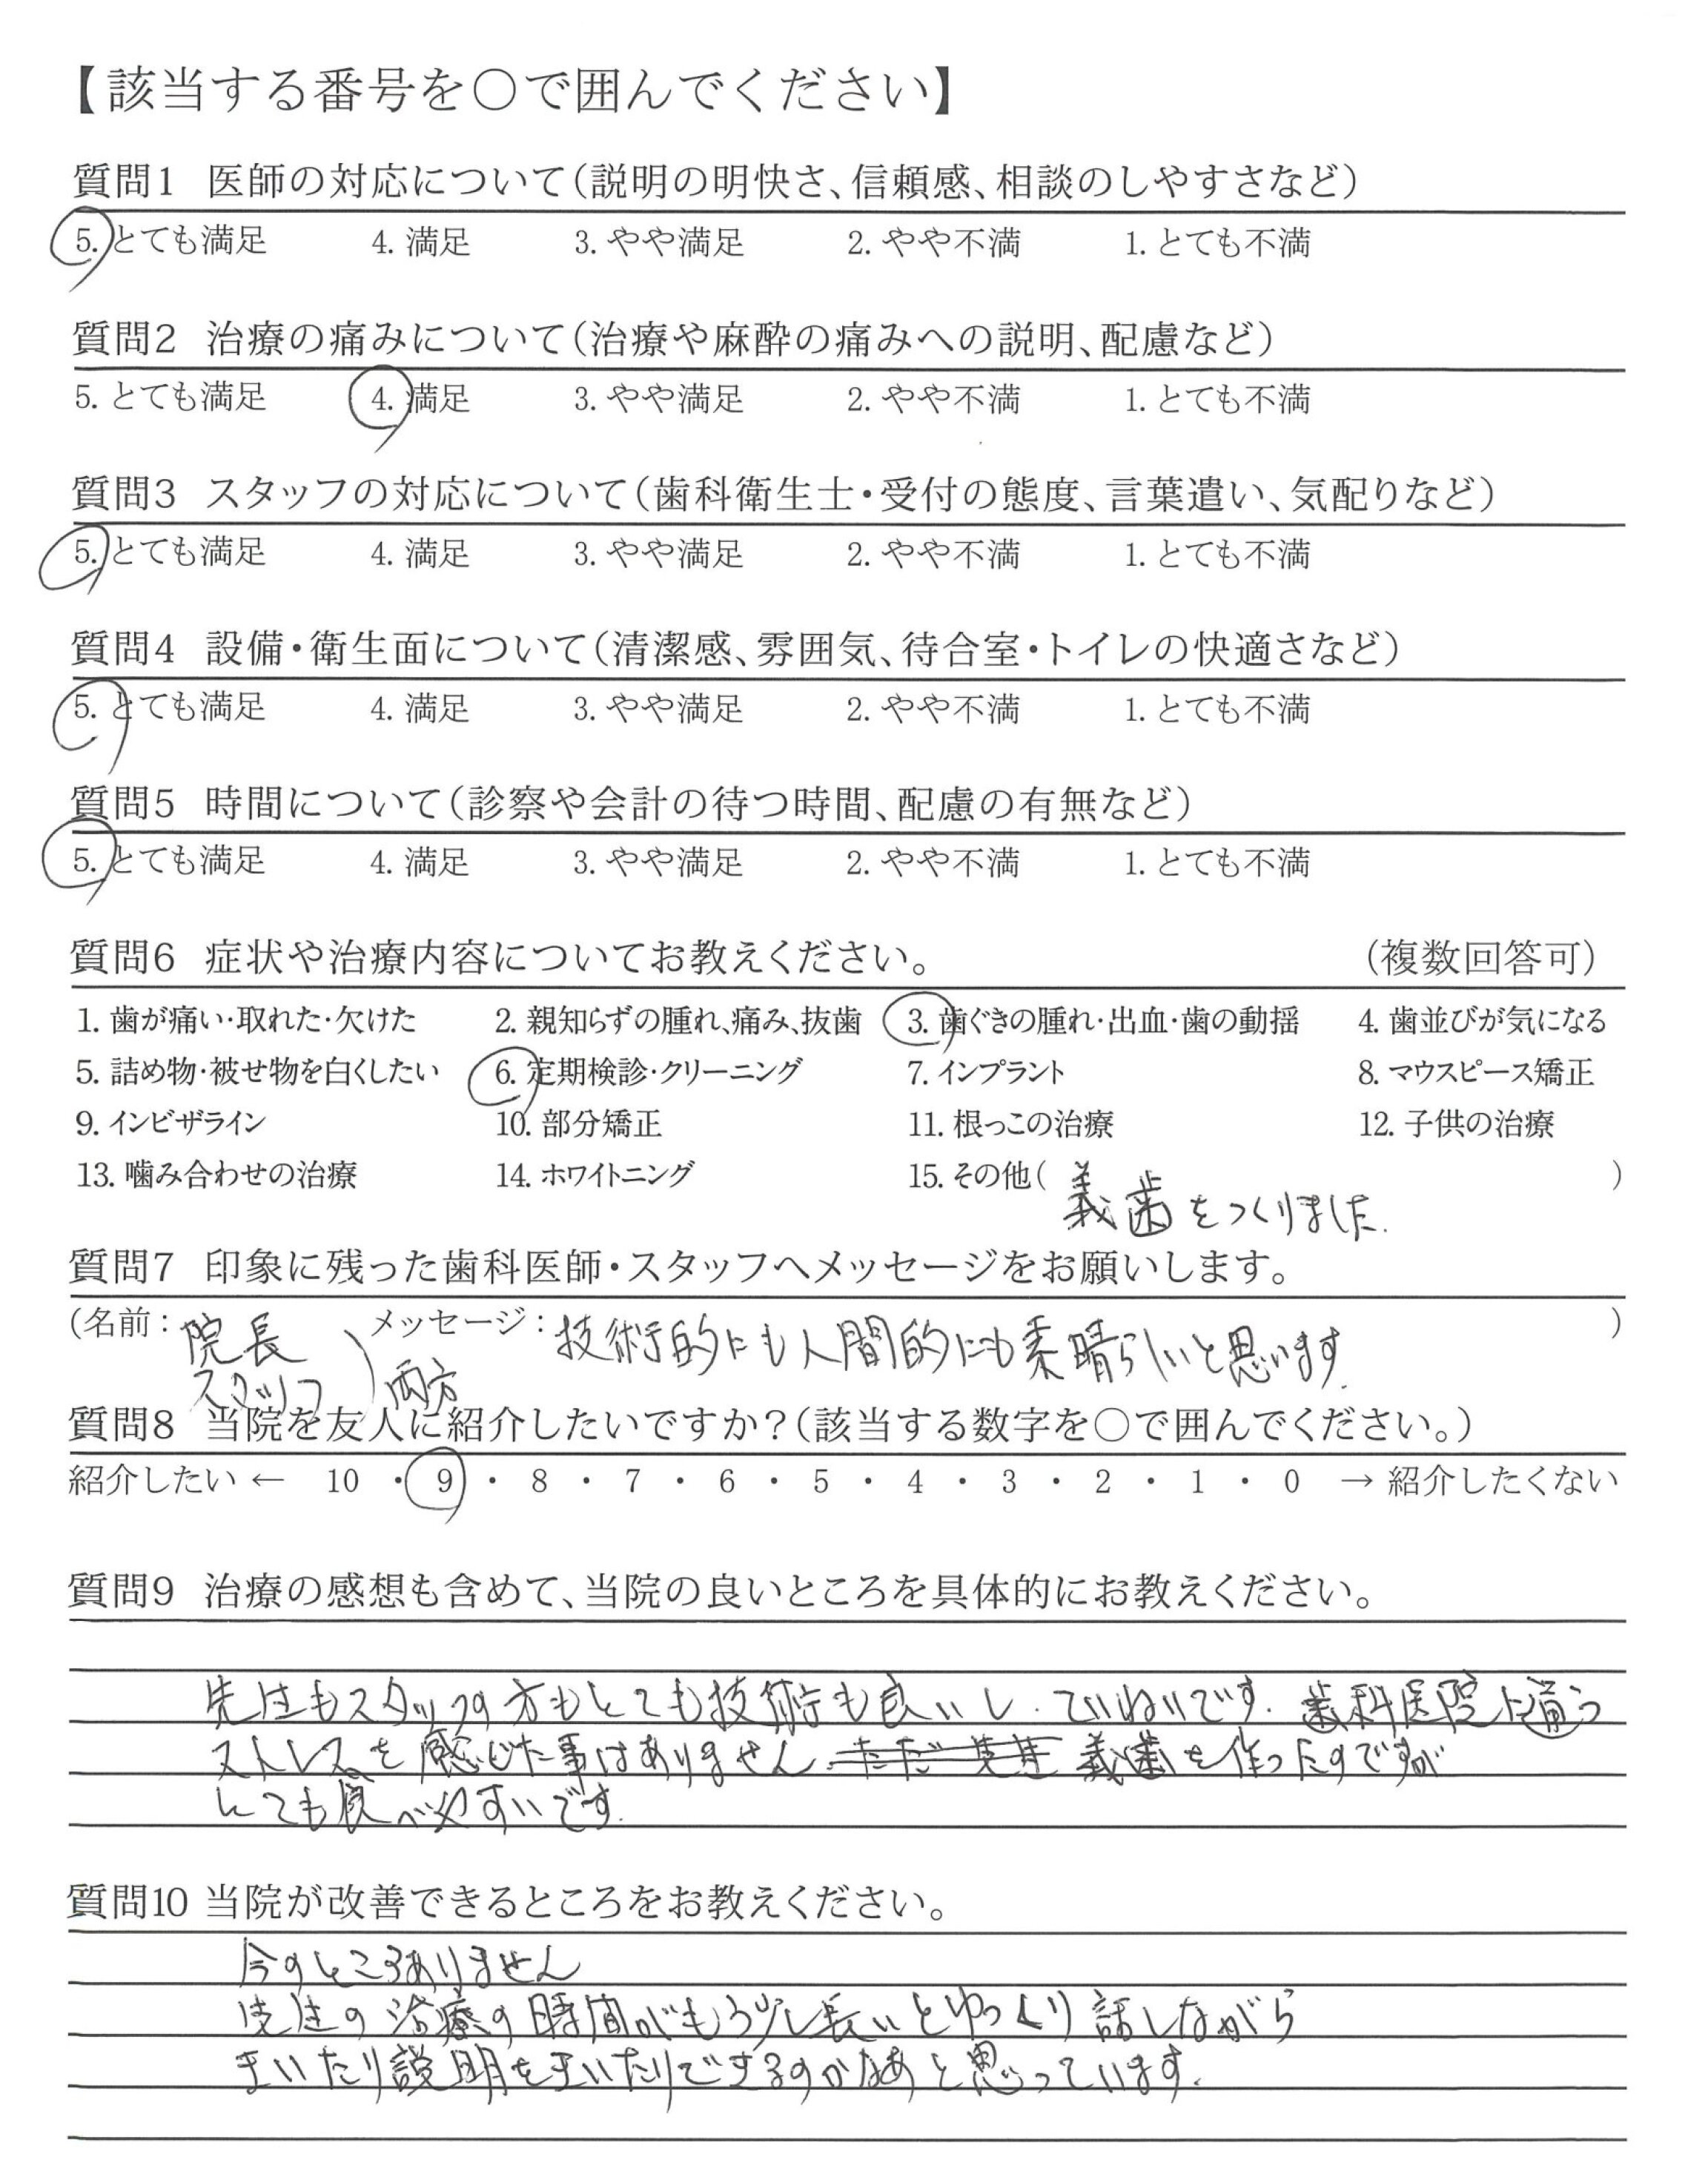 【該当する番号を○で囲んでください】
質問1 医師の対応について(説明の明快さ、信頼感、相談のしやすさなど)
5. とても満足 4. 満足 3. やや満足 2. やや不満 1. とても不満
質問2 治療の痛みについて(治療や麻酔の痛みへの説明、配慮など)
5. とても満足 4. 満足 3. やや満足 2. やや不満 1. とても不満
質問3 スタッフの対応について(歯科衛生士・受付の態度、言葉遣い、気配りなど)
5. とても満足 4. 満足 3. やや満足 2. やや不満 1. とても不満
質問4 設備・衛生面について(清潔感、雰囲気、待合室・トイレの快適さなど)
5. とても満足 4. 満足 3. やや満足 2. やや不満 1. とても不満
質問5 時間について(診察や会計の待つ時間、配慮の有無など)
5. とても満足 4. 満足 3. やや満足 2. やや不満 1. とても不満
質問6 症状や治療内容についてお教えください。 (複数回答可)
1. 歯が痛い・取れた・欠けた 2. 親知らずの腫れ、痛み、抜歯 3. 歯ぐきの腫れ・出血・歯の動揺 4. 歯並びが気になる
5. 詰め物・被せ物を白くしたい 6. 定期検診・クリーニング 7. インプラント 8. マウスピース矯正
9. インビザライン 10. 部分矯正 11. 根っこの治療 12. 子供の治療
13. 噛み合わせの治療 14. ホワイトニング 15. その他( 義歯をつくりました. )
質問7 印象に残った歯科医師・スタッフへメッセージをお願いします。
(名前: 院長 メッセージ: 技術的にも人間的にも素晴らしいと思います. )
スタッフ ) 両方
質問8 当院を友人に紹介したいですか?(該当する数字を○で囲んでください。)
紹介したい ← 10 ・ 9 ・ 8 ・ 7 ・ 6 ・ 5 ・ 4 ・ 3 ・ 2 ・ 1 ・ 0 → 紹介したくない
質問9 治療の感想も含めて、当院の良いところを具体的にお教えください。
先生もスタッフの方もとても技術も良いし、ていねいです. 歯科医院に通う
ストレスを感じた事はありません. ただ 先生 義歯を作ったのですが
とても食べやすいです.
質問10 当院が改善できるところをお教えください。
今のところありません
先生の治療の時間がもう少し長いとゆっくり話しながら
きいたり説明をきいたりできるのかなあと思っています.